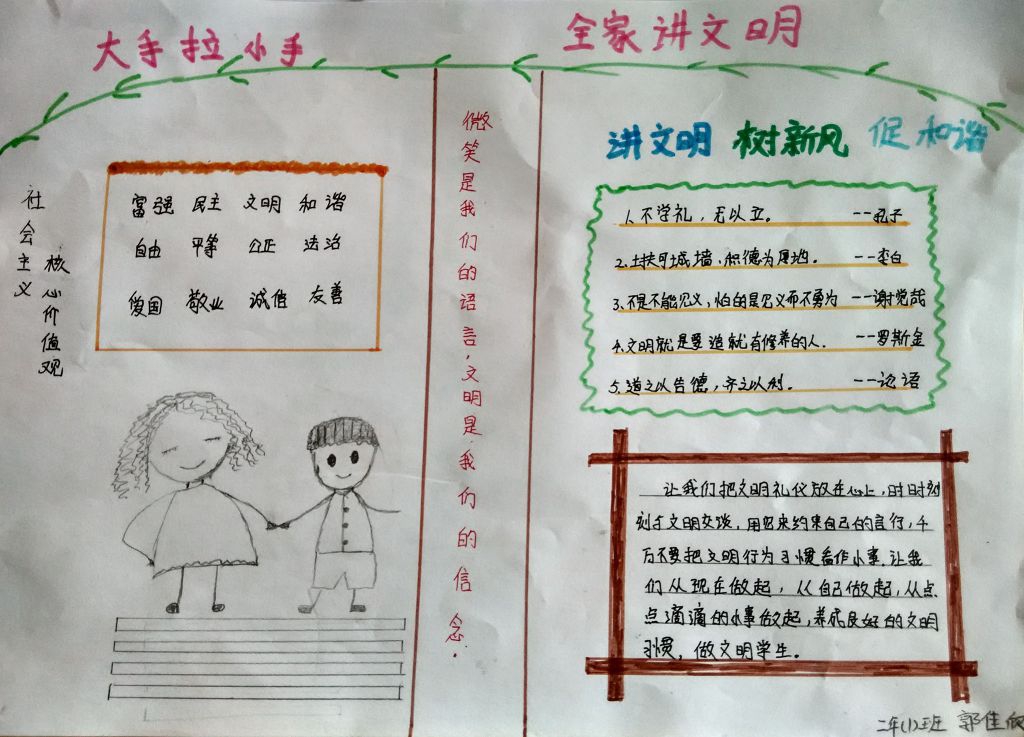 大手拉小手
全家讲文明
社会主义
核心价值观
富强 民主 文明 和谐
自由 平等 公正 法治
爱国 敬业 诚信 友善
微笑是我们的语言,文明是我们的信念.
讲文明 树新风 促和谐
1.不学礼，无以立。 --孔子
2.土扶可城墙,积德为厚地。 --李白
3.不是不能见义,怕的是见义而不勇为 --谢觉哉
4.文明就是要造就有修养的人. --罗斯金
5.道之以告德,齐之以利. --论语
让我们把文明礼仪放在心上,时时刻
刻与文明交谈,用它来约束自己的言行,千
万不要把文明行为习惯看作小事,让我
们从现在做起,从自己做起,从点
点滴滴的小事做起,养成良好的文明
习惯,做文明学生。
二年(1)班 郭佳